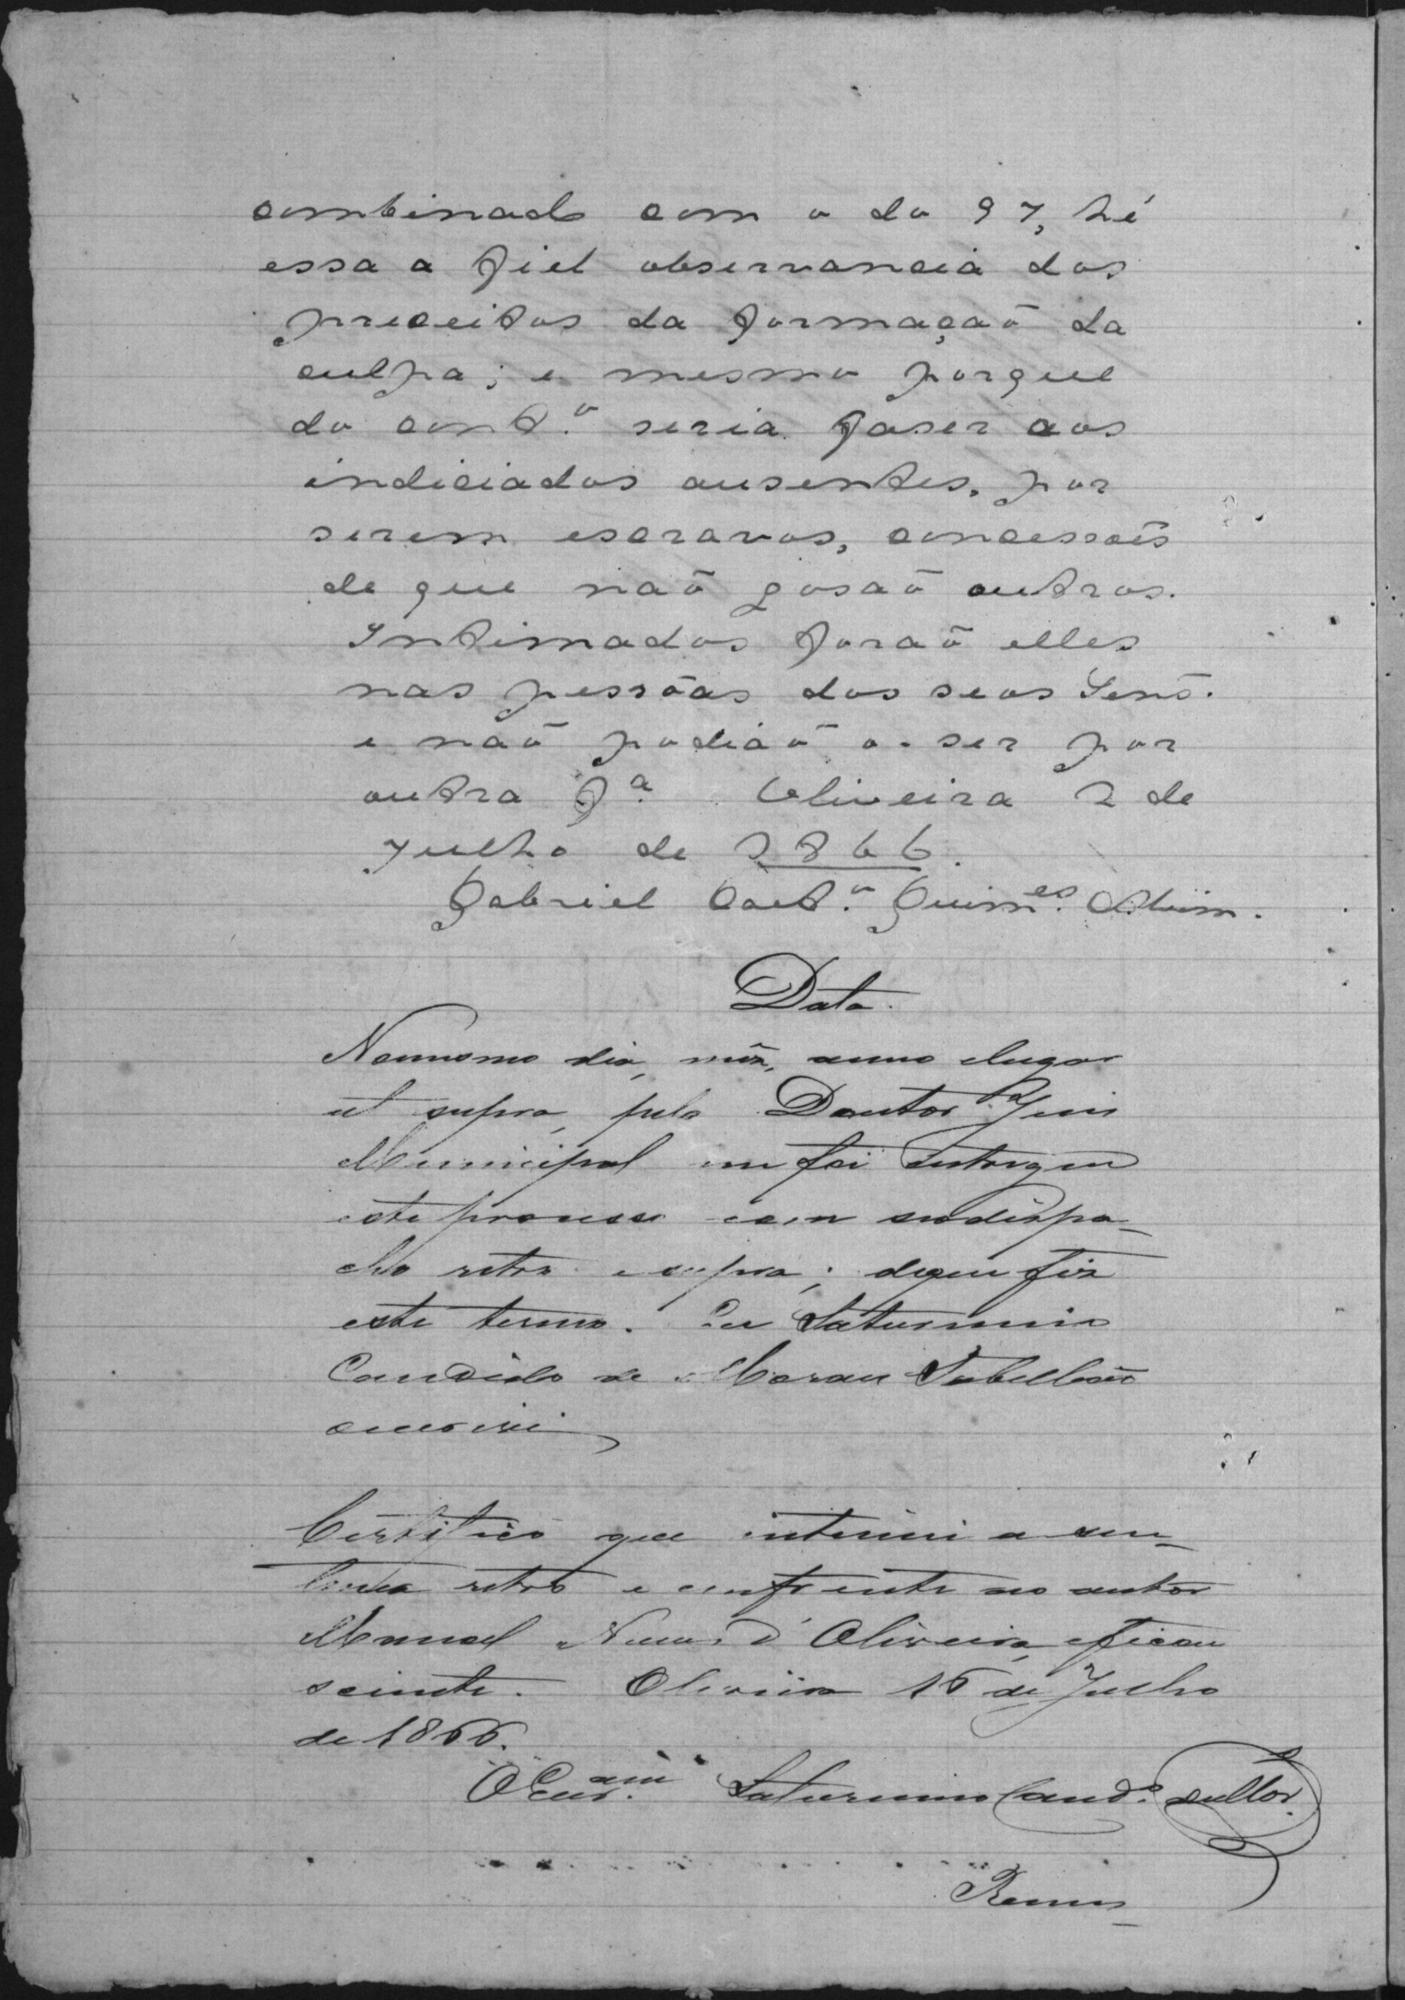 combinado com o do 97, hé
essa a fiel observancia dos
preceitos da formaçaõ da
culpa; e mesmo porque
do contr.o seria faser aos
indiciados ausentes, por
serem escravos, concessoẽs
de que naõ gosaõ outros.
Intimados foraõ elles
nas pessõas dos seos Senr.
e naõ podiaõ o ser por
outra f.a Oliveira 2 de
Julho de 1866.
Gabriel Caet.o Guim.es Alvim.
Data.
Nomesmo dia, mẽz, anno elugar
ut supra, pelo Doutor Juis
Municipal me foi entregue
este processo com seodespa-
cho retro e supra; deque fiz
este termo. Eu Saturnino
Candido de Moraes Tabelliaõ
oescrevi
Certifico que intimei a sen-
tença retro e emfrente ao autor
Manoel Nunes d'Oliveira, eficou
sciente. Oliveira 16 de Julho
de 1866.
O Escr.am Saturnino Cand.o
Remes-